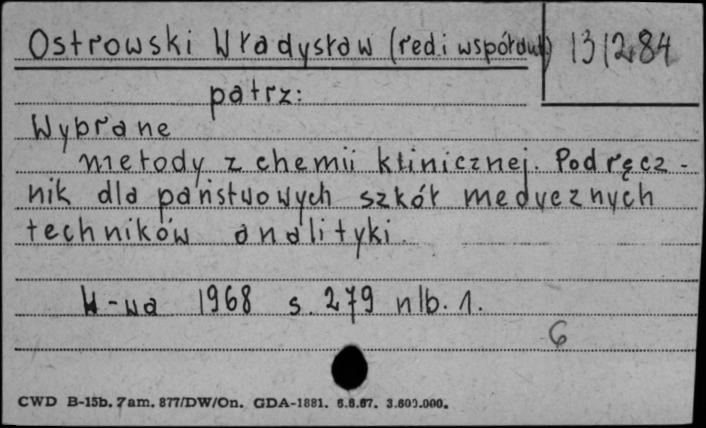 Ostrowski Władysław (red.i współaut) 131284
patrz:
Wybrane
metody z chemii klinicznej. Podręcz-
nik dla państwowych szkół medycznych
techników analityki.
W-wa 1968 s. 279 nlb. 1.
6
CWD B-15b. Zam. 877/DW/On. GDA-1881. 6.6.67. 3.600.000.